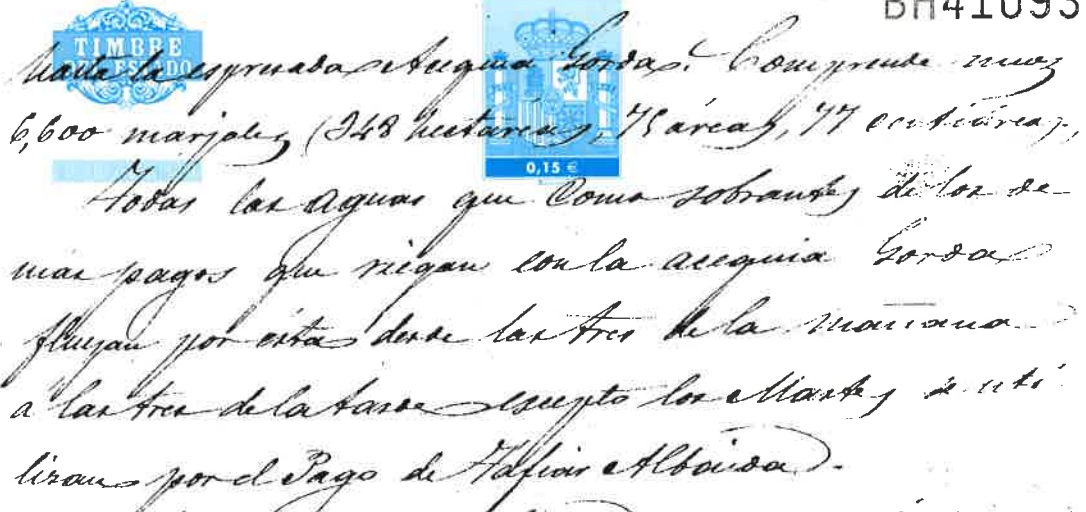 BH41093
TIMBRE
DEL ESTADO
0,15 €
hasta la espresada Acequia Gorda. Comprende unos
6,600 marjales (348 hectáreas, 75 áreas, 77 centiáreas,
Todas las aguas que como sobrantes de los de
mas pagos que riegan con la acequia Gorda
fluyan por esta desde las tres de la mañana
á las tres de la tarde escepto los Martes se uti
lizan por el Pago de Tafiar Albaida.